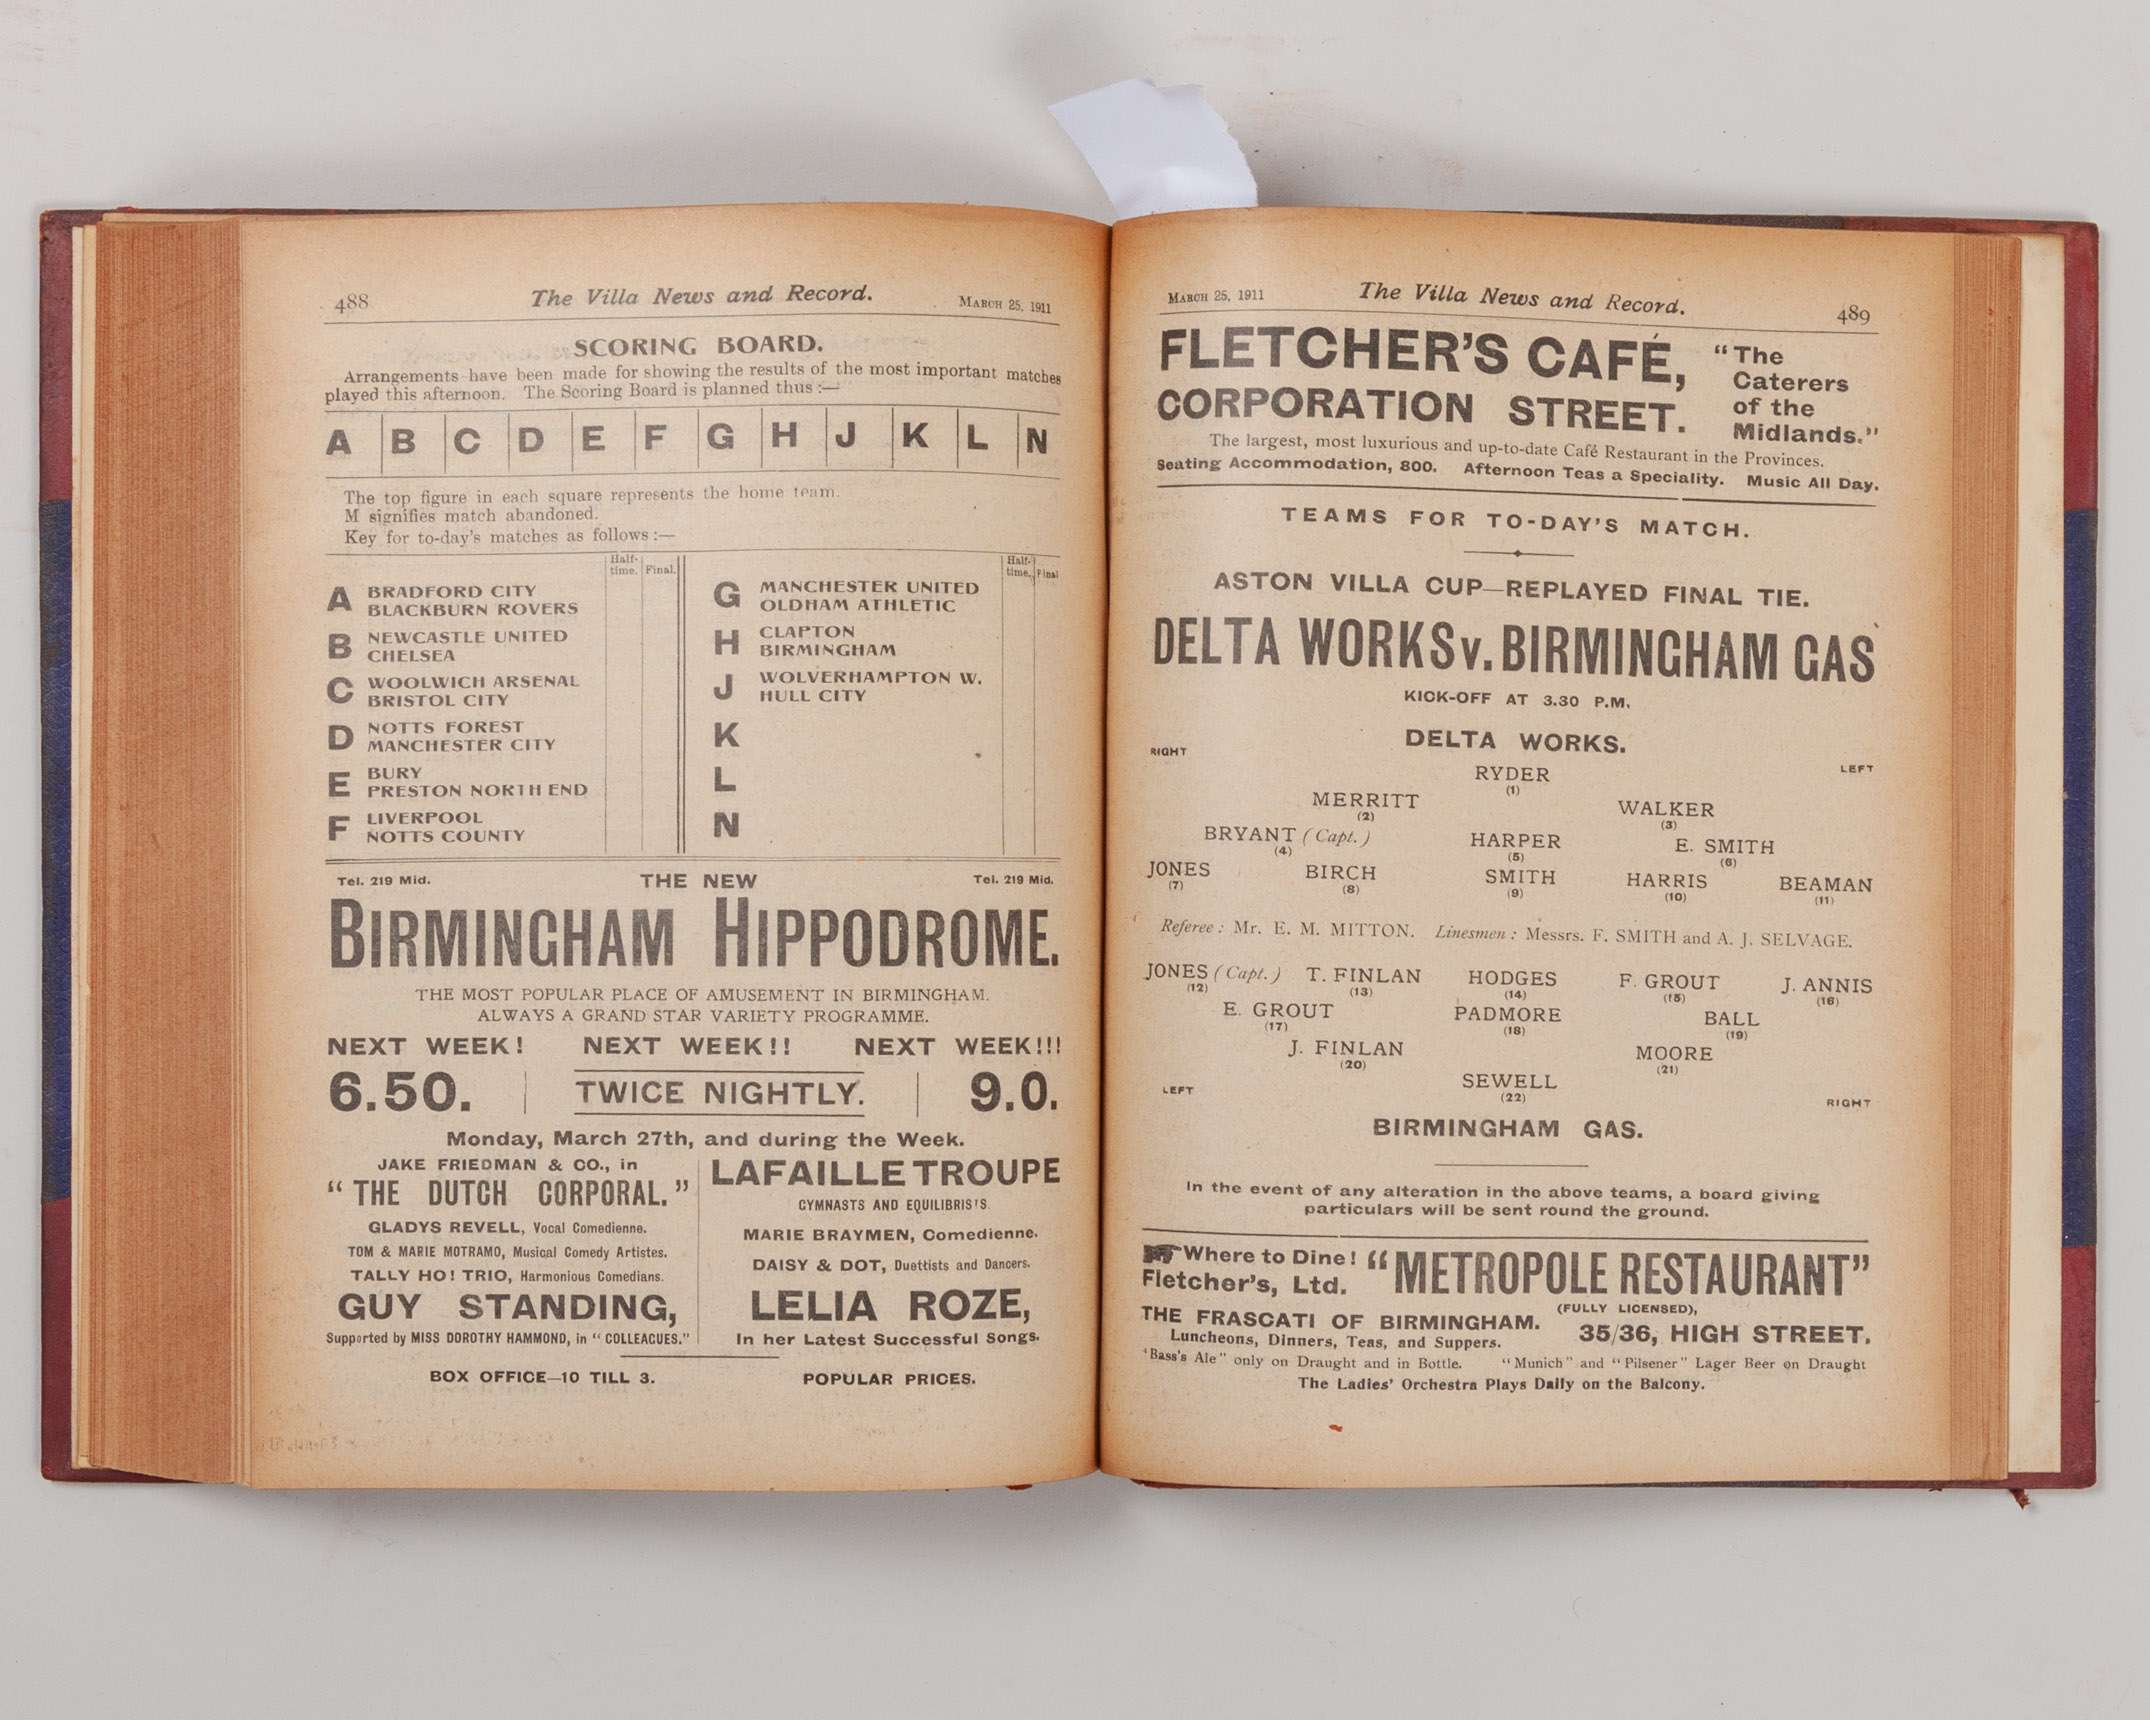 488 The Villa News and Record. MARCH 25, 1911
SCORING BOARD.
Arrangements have been made for showing the results of the most important matches
played this afternoon. The Scoring Board is planned thus :—
A B C D E F G H J K L N
The top figure in each square represents the home team.
M signifies match abandoned.
Key for to-day's matches as follows :—
Half-time. Final.
A BRADFORD CITY
BLACKBURN ROVERS
B NEWCASTLE UNITED
CHELSEA
C WOOLWICH ARSENAL
BRISTOL CITY
D NOTTS FOREST
MANCHESTER CITY
E BURY
PRESTON NORTH END
F LIVERPOOL
NOTTS COUNTY
Half-time. Final
G MANCHESTER UNITED
OLDHAM ATHLETIC
H CLAPTON
BIRMINGHAM
J WOLVERHAMPTON W.
HULL CITY
K
L
N
Tel. 219 Mid. THE NEW Tel. 219 Mid.
BIRMINGHAM HIPPODROME.
THE MOST POPULAR PLACE OF AMUSEMENT IN BIRMINGHAM.
ALWAYS A GRAND STAR VARIETY PROGRAMME.
NEXT WEEK! NEXT WEEK!! NEXT WEEK!!!
6.50. TWICE NIGHTLY. 9.0.
Monday, March 27th, and during the Week.
JAKE FRIEDMAN & CO., in
"THE DUTCH CORPORAL."
GLADYS REVELL, Vocal Comedienne.
TOM & MARIE MOTRAMO, Musical Comedy Artistes.
TALLY HO! TRIO, Harmonious Comedians.
GUY STANDING,
Supported by MISS DOROTHY HAMMOND, in "COLLEAGUES."
LAFAILLE TROUPE
GYMNASTS AND EQUILIBRISTS.
MARIE BRAYMEN, Comedienne.
DAISY & DOT, Duettists and Dancers.
LELIA ROZE,
In her Latest Successful Songs.
BOX OFFICE—10 TILL 3. POPULAR PRICES.
MARCH 25, 1911 The Villa News and Record. 489
FLETCHER'S CAFÉ,
CORPORATION STREET.
"The
Caterers
of the
Midlands."
The largest, most luxurious and up-to-date Café Restaurant in the Provinces.
Seating Accommodation, 800. Afternoon Teas a Speciality. Music All Day.
TEAMS FOR TO-DAY'S MATCH.
ASTON VILLA CUP—REPLAYED FINAL TIE.
DELTA WORKS v. BIRMINGHAM GAS
KICK-OFF AT 3.30 P.M.
DELTA WORKS.
RIGHT LEFT
RYDER
(1)
MERRITT WALKER
(2) (3)
BRYANT (Capt.) HARPER E. SMITH
(4) (5) (6)
JONES BIRCH SMITH HARRIS BEAMAN
(7) (8) (9) (10) (11)
Referee: Mr. E. M. MITTON. Linesmen: Messrs. F. SMITH and A. J. SELVAGE.
JONES (Capt.) T. FINLAN HODGES F. GROUT J. ANNIS
(12) (13) (14) (15) (16)
E. GROUT PADMORE BALL
(17) (18) (19)
J. FINLAN MOORE
(20) (21)
SEWELL
(22)
LEFT RIGHT
BIRMINGHAM GAS.
In the event of any alteration in the above teams, a board giving
particulars will be sent round the ground.
Where to Dine! "METROPOLE RESTAURANT"
Fletcher's, Ltd.
(FULLY LICENSED),
THE FRASCATI OF BIRMINGHAM. 35/36, HIGH STREET.
Luncheons, Dinners, Teas, and Suppers.
'Bass's Ale" only on Draught and in Bottle. "Munich" and "Pilsener" Lager Beer on Draught
The Ladies' Orchestra Plays Daily on the Balcony.